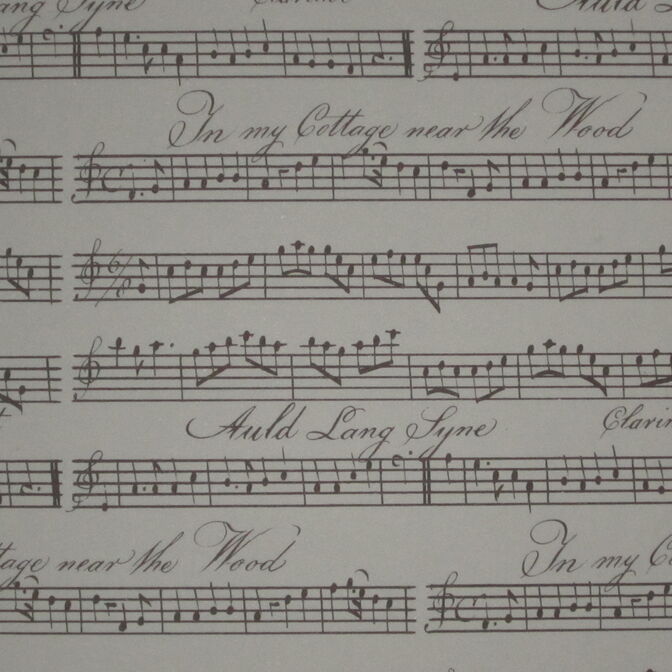 ang Syne Auld
In my Cottage near the Wood
Auld Lang Syne Clarin
tage near the Wood In my Co